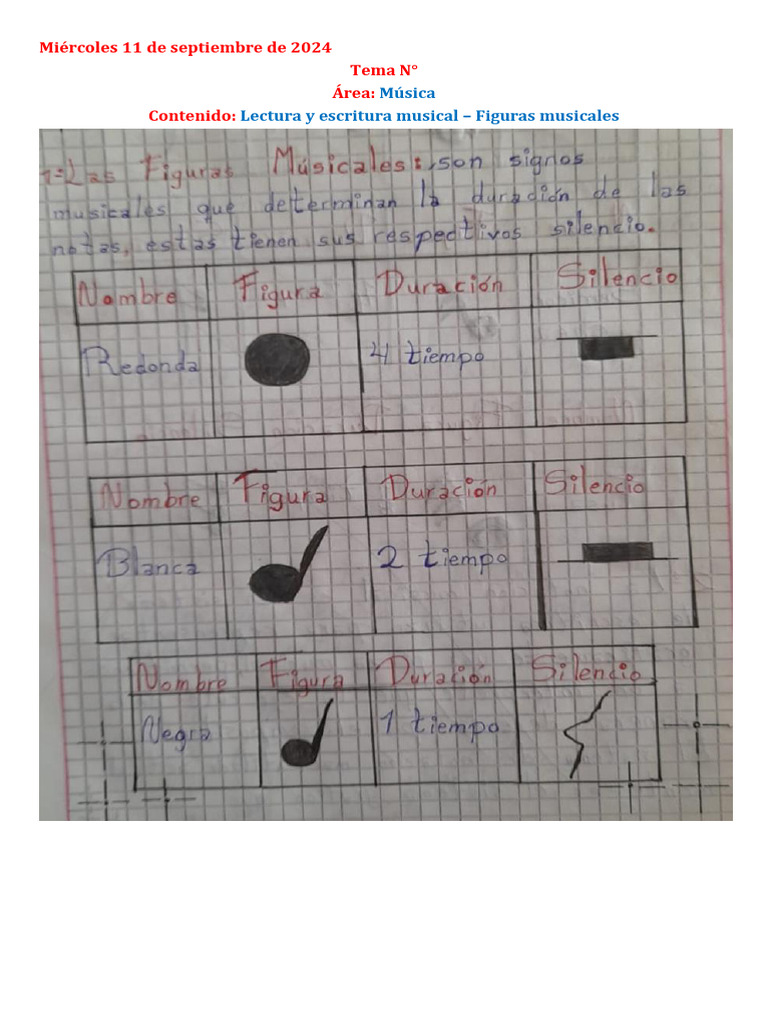 Miércoles 11 de septiembre de 2024
Tema N°
Área: Música
Contenido: Lectura y escritura musical – Figuras musicales
1=Las Figuras Músicales: son signos
musicales que determinan la duración de las
notas, estas tienen sus respectivos silencio.
Nombre Figura Duración Silencio
Redonda 4 tiempo
Nombre Figura Duración Silencio
Blanca 2 tiempo
Nombre Figura Duración Silencio
Negra 1 tiempo